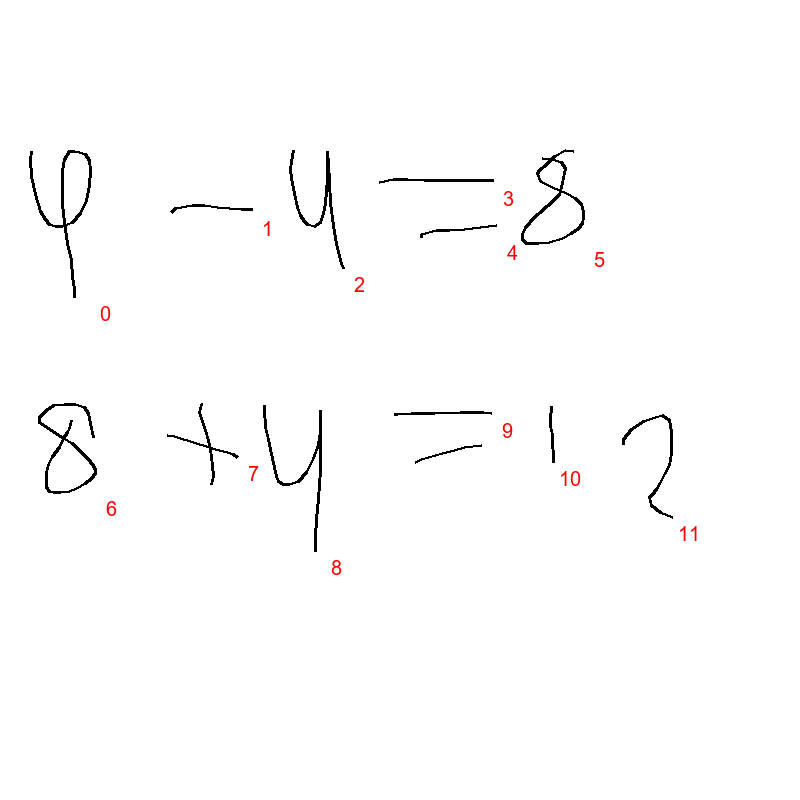 φ - 4 = 8
0 1 2 3 4 5
8 + 4 = 12
6 7 8 9 10 11